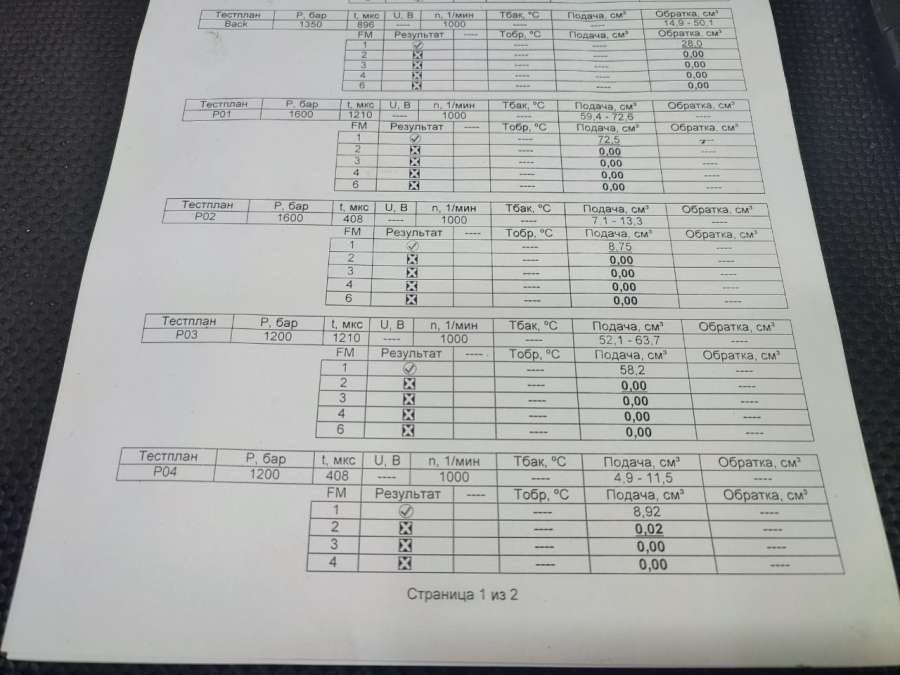 Тестплан P, бар t, мкс U, В n, 1/мин Тбак, ºС Подача, см³ Обратка, см³
Back 1350 896 ---- 1000 ---- ---- 14,9 - 50,1
FM Результат ---- Тобр, ºС Подача, см³ Обратка, см³
1 ---- ---- 28,0
2 ---- ---- 0,00
3 ---- ---- 0,00
4 ---- ---- 0,00
6 ---- ---- 0,00
Тестплан P, бар t, мкс U, В n, 1/мин Тбак, ºС Подача, см³ Обратка, см³
P01 1600 1210 ---- 1000 ---- 59,4 - 72,6 ----
FM Результат ---- Тобр, ºС Подача, см³ Обратка, см³
1 ---- 72,5 ----
2 ---- 0,00 ----
3 ---- 0,00 ----
4 ---- 0,00 ----
6 ---- 0,00 ----
Тестплан P, бар t, мкс U, В n, 1/мин Тбак, ºС Подача, см³ Обратка, см³
P02 1600 408 ---- 1000 ---- 7,1 - 13,3 ----
FM Результат ---- Тобр, ºС Подача, см³ Обратка, см³
1 ---- 8,75 ----
2 ---- 0,00 ----
3 ---- 0,00 ----
4 ---- 0,00 ----
6 ---- 0,00 ----
Тестплан P, бар t, мкс U, В n, 1/мин Тбак, ºС Подача, см³ Обратка, см³
P03 1200 1210 ---- 1000 ---- 52,1 - 63,7 ----
FM Результат ---- Тобр, ºС Подача, см³ Обратка, см³
1 ---- 58,2 ----
2 ---- 0,00 ----
3 ---- 0,00 ----
4 ---- 0,00 ----
6 ---- 0,00 ----
Тестплан P, бар t, мкс U, В n, 1/мин Тбак, ºС Подача, см³ Обратка, см³
P04 1200 408 ---- 1000 ---- 4,9 - 11,5 ----
FM Результат ---- Тобр, ºС Подача, см³ Обратка, см³
1 ---- 8,92 ----
2 ---- 0,02 ----
3 ---- 0,00 ----
4 ---- 0,00 ----
Страница 1 из 2